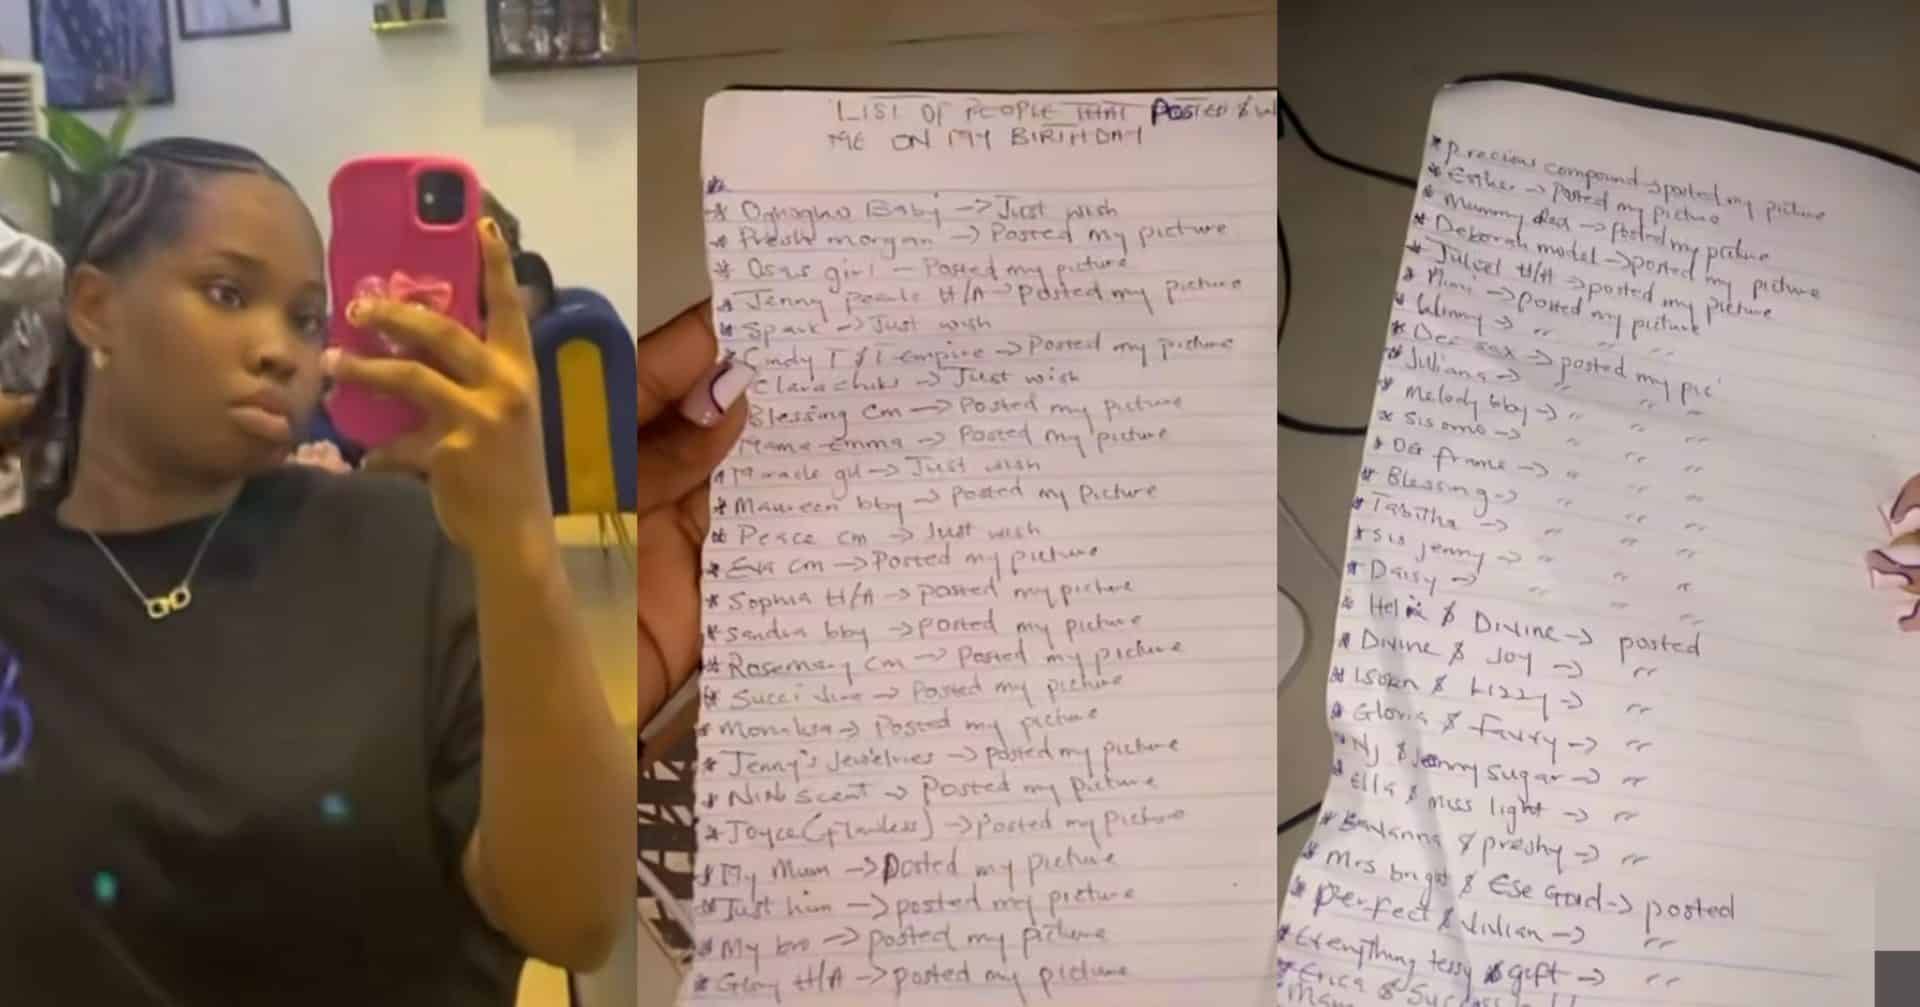 LIST OF PEOPLE THAT POSTED &
ME ON MY BIRTHDAY
*
* Oghogho Baby -> Just wish
* Presh morgan -> Posted my picture
* Osas girl - Posted my picture
* Jenny Pearle H/A -> posted my picture
* Spark -> Just wish
* Cindy T & T empire -> Posted my picture
Clara chiks -> Just wish
Blessing Cm -> Posted my picture
Mama Emma -> Posted my picture
* Miracle gh -> Just wish
* Maureen bby -> Posted my Picture
* Peace cm -> Just wish
* Eva cm -> Posted my picture
* Sophia H/A -> posted my picture
* Sandra bby -> posted my picture
* Rosemary Cm -> Posted my picture
* -> Posted my picture
* -> Posted my picture
* Jenny's Jewelries -> posted my picture
* NiNi Scent -> Posted my Picture
* Joyce (flawless) -> posted my picture
* My Mum -> Posted my picture
* Just him -> posted my picture
* My bro -> posted my picture
* Glory H/A -> posted my picture
* Precious compound -> posted my picture
* Esther -> Posted my picture
* Mummy -> Posted my picture
* Deborah model -> posted my picture
* Juliet H/A -> posted my picture
* Mimi -> posted my picture
* Winny -> " " "
* -> posted my pic
* Juliana -> " " "
* Melody bby -> " " "
* Sis omo -> " " "
* OG frame -> " " "
* Blessing -> " " "
* Tabitha -> " " "
* Sis jenny -> " " "
* Daisy -> " " "
* & Divine -> posted
* Divine & Joy -> "
* Isoken & Lizzy -> "
* Gloria & Favvy -> "
* NJ & Jenny sugar -> "
* Ella & Miss light -> "
* & preshy -> "
* Mrs bright & Ese Gold -> posted
* Perfect & Vivian -> "
* Everything tessy & gift -> "
* Erica & Success